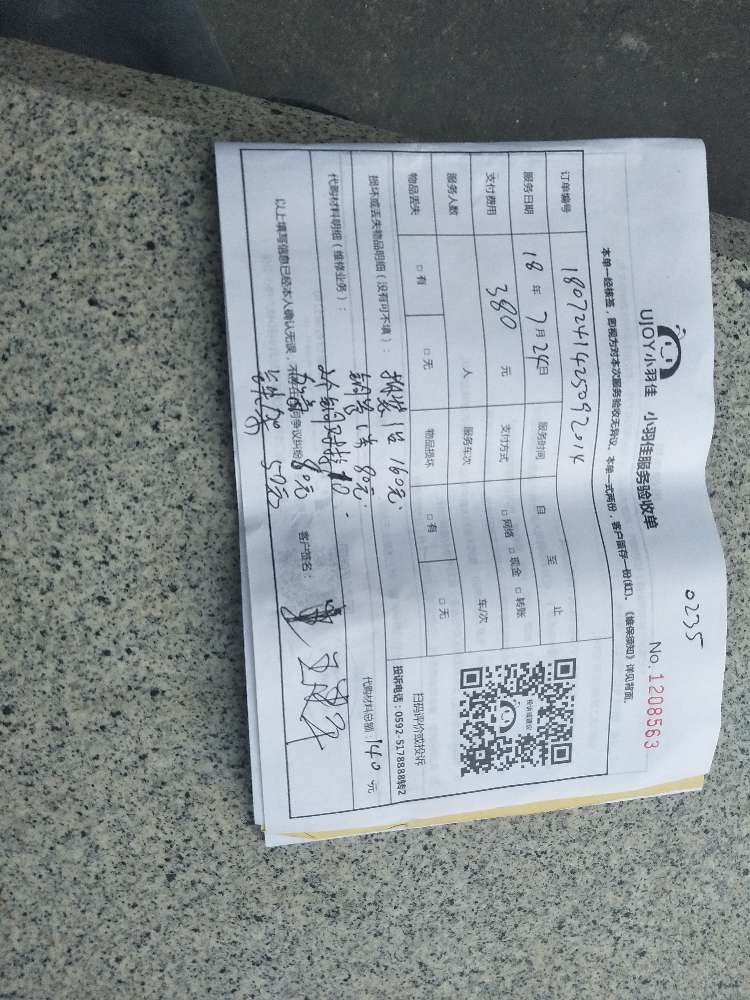 0235
UJOY小羽佳 小羽佳服务验收单
No.1208563
本单一经核签，即视为对本次服务验收无异议。本单一式两份，客户留存一份(红)。《维保须知》详见背面。
订单编号 1807241425092014
服务日期 18年7月24日 服务时间 自 至 止
支付费用 380元 支付方式 □网络 □现金 □转账
服务人数 人 服务车次 车/次
物品丢失 □有 □无 物品损坏 □有 □无
扫码评价或投诉
投诉电话：0592-5178888转2
损坏或丢失物品明细（没有可不填）： 拆装1台160元
代购材料明细（维修业务）： 铜管1米80元
代购材料总额：140元
80元
50元
以上填写信息已经本人确认无误，争议纠纷 客户签名：